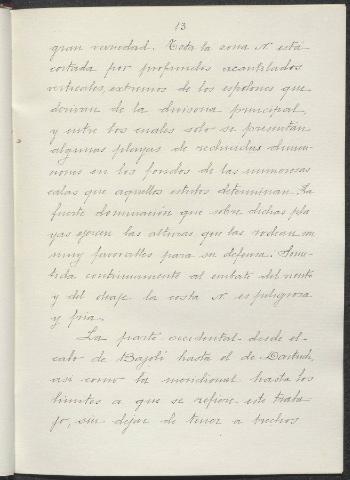 13
gran variedad. Toda la zona N. está
cortada por profundos acantilados
verticales, extremos de los espolones que
derivan de la divisoria principal,
y entre los cuales solo se presentan
algunas playas de reducidas dimen-
siones en los fondos de las numerosas
calas que aquellos estribos determinan. La
fuerte dominación que sobre dichas pla
yas ejercen las alturas que las rodean, son
muy favorables para su defensa. Some-
tida continuamente al embate del viento
y del oleaje la costa N. es peligrosa
y fría.
La parte occidental desde el
cabo de Bajolí hasta el de Dartuch,
así como la meridional hasta los
límites a que se refiere este traba
jo, sin dejar de tener a trechos